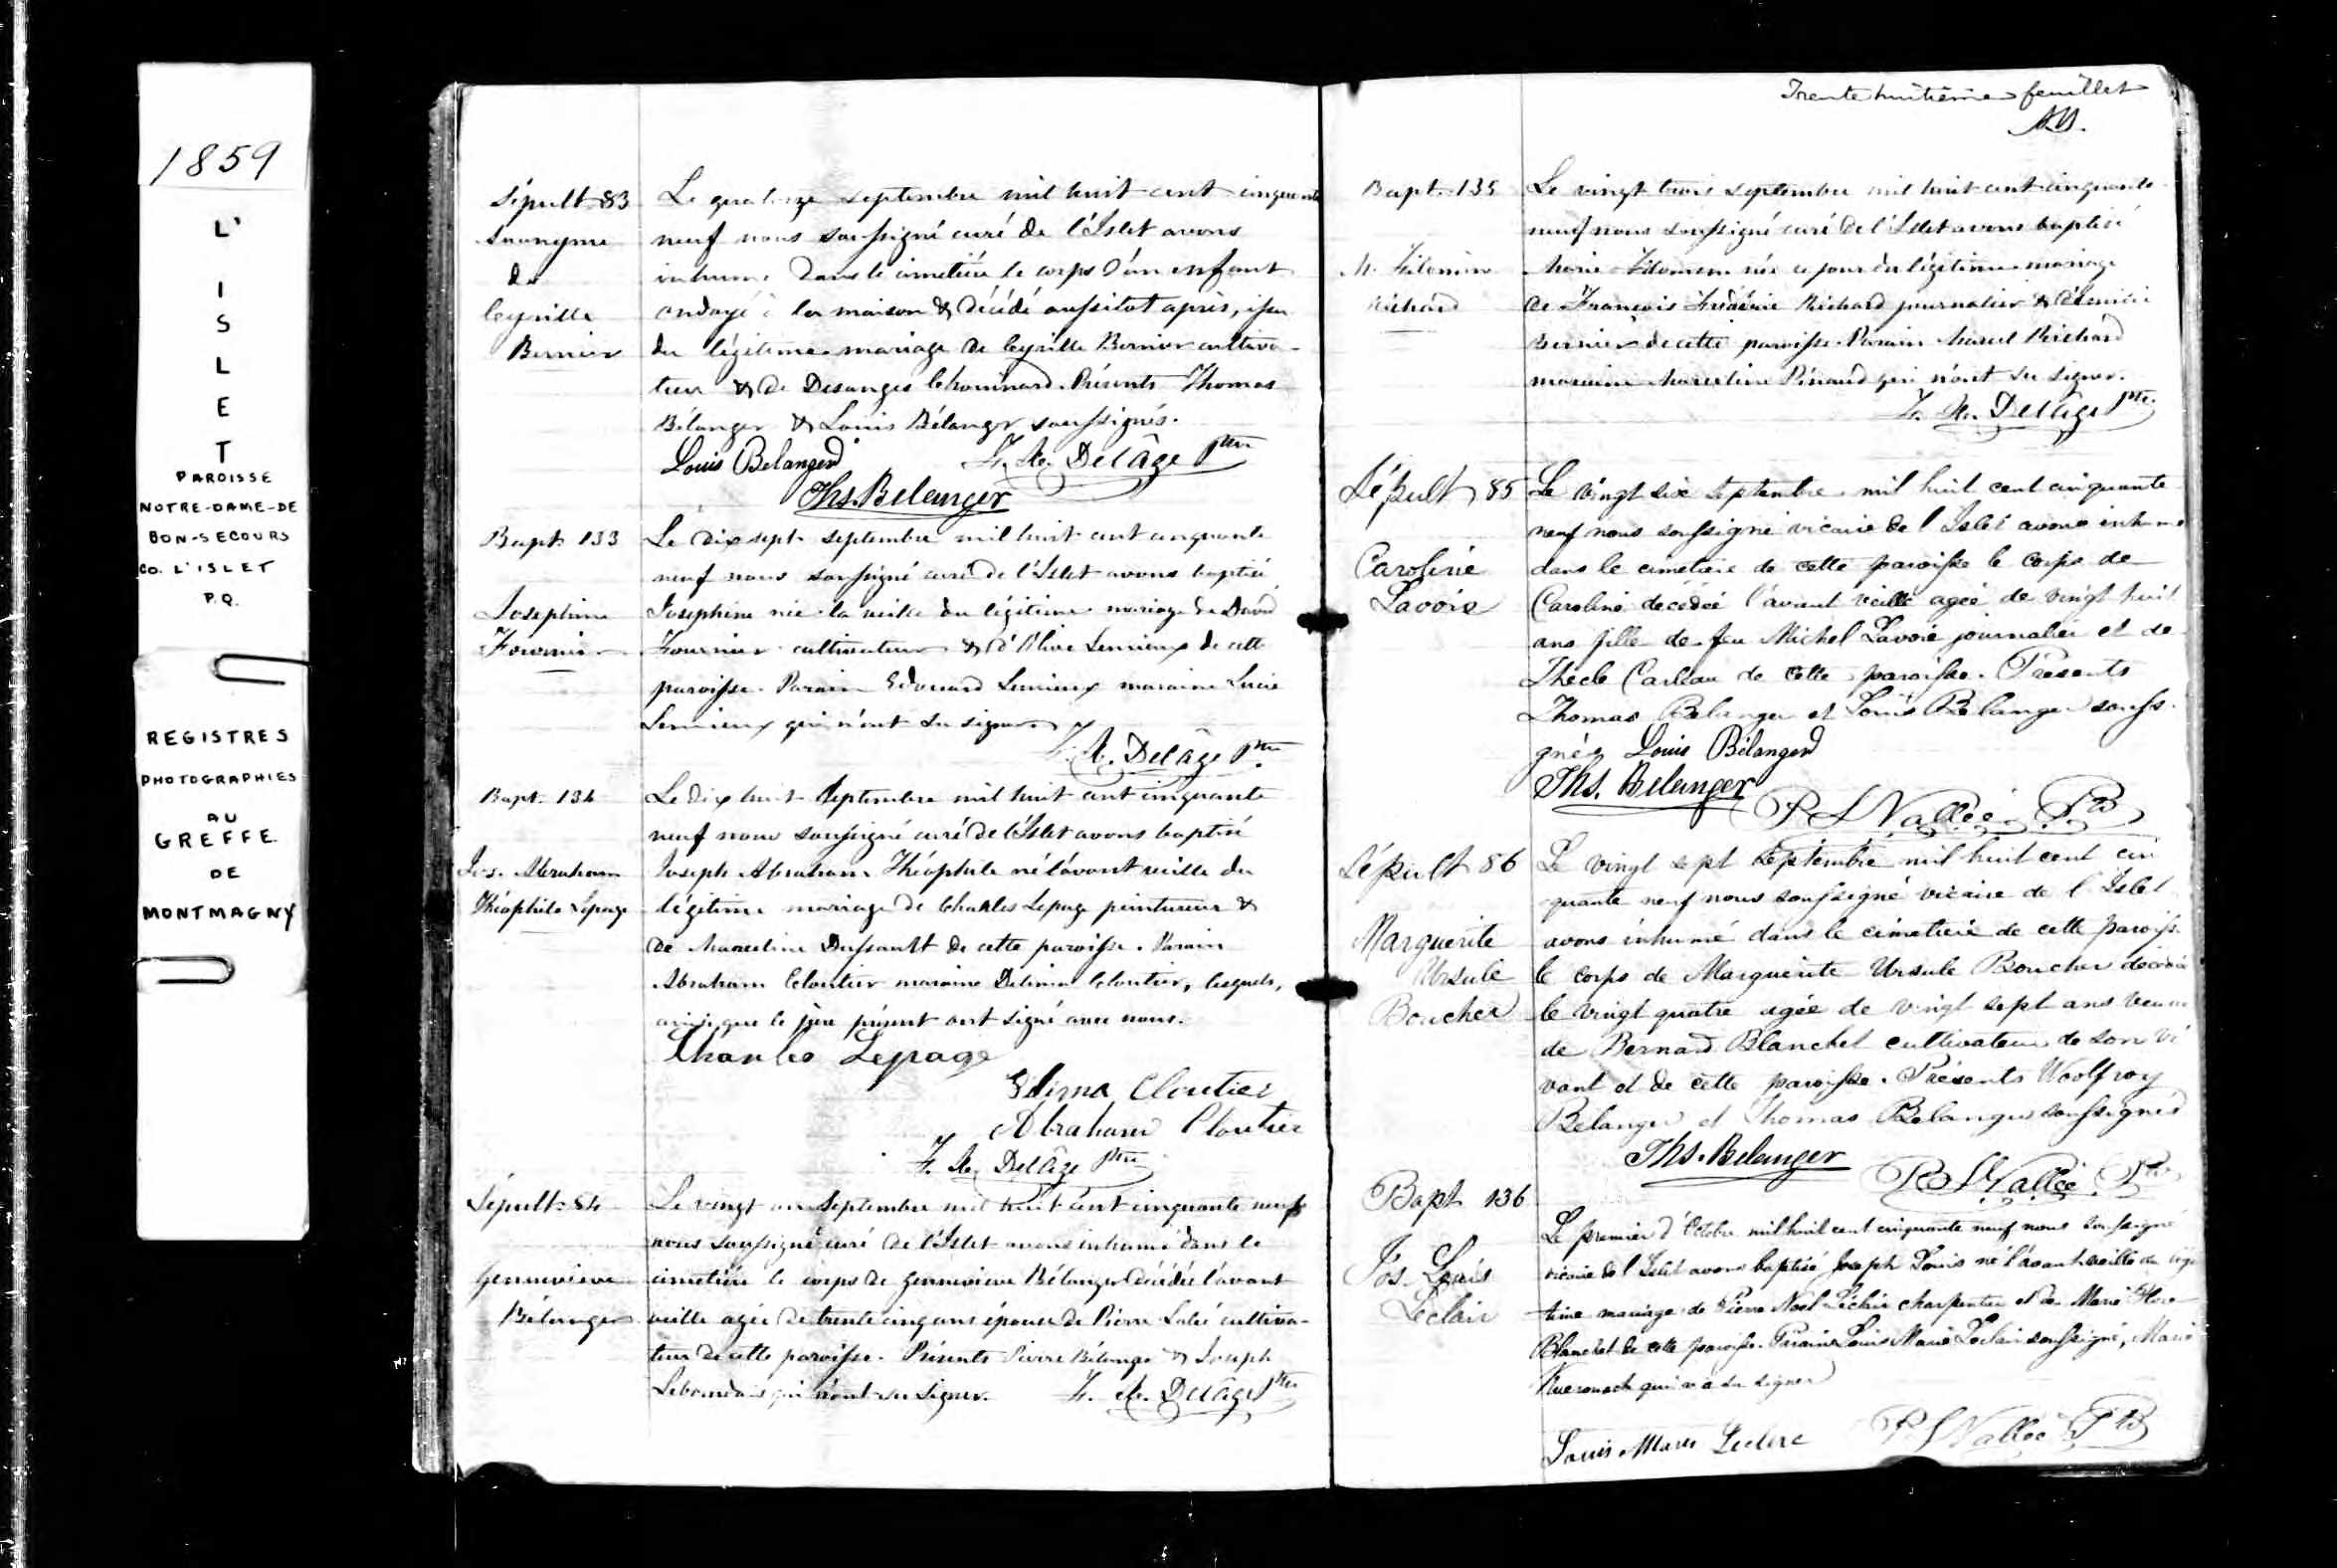 1859
L'
I
S
L
E
T
PAROISSE
NOTRE-DAME-DE
BON-SECOURS
CO. L'ISLET
P.Q.
REGISTRES
PHOTOGRAPHIES
AU
GREFFE
DE
MONTMAGNY
Sépult. 83
Anonyme
de
Cyrille
Bernier
Le quatorze septembre mil huit cent cinquante
neuf nous soussigné curé de l'Islet avons
inhumé dans le cimetière le corps d'un enfant
ondoyé à la maison & décédé aussitot après, issu
du légitime mariage de Cyrille Bernier cultiva-
teur & de Desanges Chouinard. Présents Thomas
Bélanger & Louis Bélanger soussignés.
Louis Belanger
F. X. Delâge Ptre
Ths. Belanger
Bapt. 133
Josephine
Fournier
Le dix sept septembre mil huit cent cinquante
neuf nous soussigné curé de l'Islet avons baptisé
Josephine née la veille du légitime mariage de David
Fournier cultivateur & d'Olive Lemieux de cette
paroisse. Parain Edouard Lemieux maraine Lucie
Lemieux qui n'ont su signer
F. X. Delâge Ptre
Bapt. 134
Jos. Abraham
Théophile Lepage
Le dix huit septembre mil huit cent cinquante
neuf nous soussigné curé de l'Islet avons baptisé
Joseph Abraham Théophile né l'avant veille du
légitime mariage de Charles Lepage peintureur &
de Marceline Dussault de cette paroisse. Parain
Abraham Cloutier maraine Delima Cloutier, lesquels,
ainsi que le père présent ont signé avec nous.
Charles Lepage
Cloutier
Abraham Cloutier
F. X. Delâge Ptre
Sépult. 84
Genevieve
Bélanger
Le vingt un septembre mil huit cent cinquante neuf
nous soussigné curé de l'Islet avons inhumé dans le
cimetière le corps de Genevieve Bélanger décédée l'avant
veille agée de trente cinq ans épouse de Pierre cultiva-
teur de cette paroisse. Présents Pierre Bélanger & Joseph
Lebourdais qui n'ont su signer. F. X. Delâge Ptre
Trente huitième feuillet
Bapt. 135
M. Filomène
Richard
Le vingt trois septembre mil huit cent cinquante
neuf nous soussigné curé de l'Islet avons baptisé
Marie Filomène née ce jour du légitime mariage
de François Frédéric Richard journalier &
Bernier de cette paroisse. Parain Marcel Richard
maraine Marceline Pinaud qui n'ont su signer.
F. X. Delâge Ptre
Sépult 85
Caroline
Lavoie
Le vingt six septembre mil huit cent cinquante
neuf nous soussigné vicaire de l'Islet avons inhumé
dans le cimetiere de cette paroisse le corps de
Caroline décédée l'avant veille agée de vingt huit
ans fille de feu Michel Lavoie journalier et de
Thecle de cette paroisse. Présents
Thomas Belanger et Louis Belanger soussi-
gnés Louis Bélanger
Ths. Belanger
Vallée
Sépult 86
Marguerite
Ursule
Boucher
Le vingt sept septembre mil huit cent cin
quante neuf nous soussigné vicaire de l'Islet
avons inhumé dans le cimetiere de cette paroisse
le corps de Marguerite Ursule Boucher décédée
le vingt quatre agée de vingt sept ans veuve
de Bernard Blanchet cultivateur de son vi
vant et de cette paroisse. Présents Woolfroy
Belanger et Thomas Belanger soussignés
Ths. Belanger
Vallée
Bapt 136
Jos. Louis
Leclair
Le premier d'Octobre mil huit cent cinquante neuf nous soussigné
vicaire de l'Islet avons baptisé Joseph Louis né l'avant veille du légi
time mariage de Pierre Noel Leclair charpentier et de Marie Flore
Blanchet de cette paroisse. Parain Louis Marie Leclair soussigné, Marie
Kuerouack qui n'a su signer
Louis Marie Leclerc
Vallée